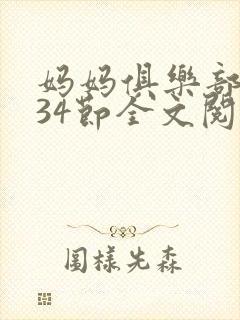 妈妈俱樂部
34節全文閱
圖樣先森